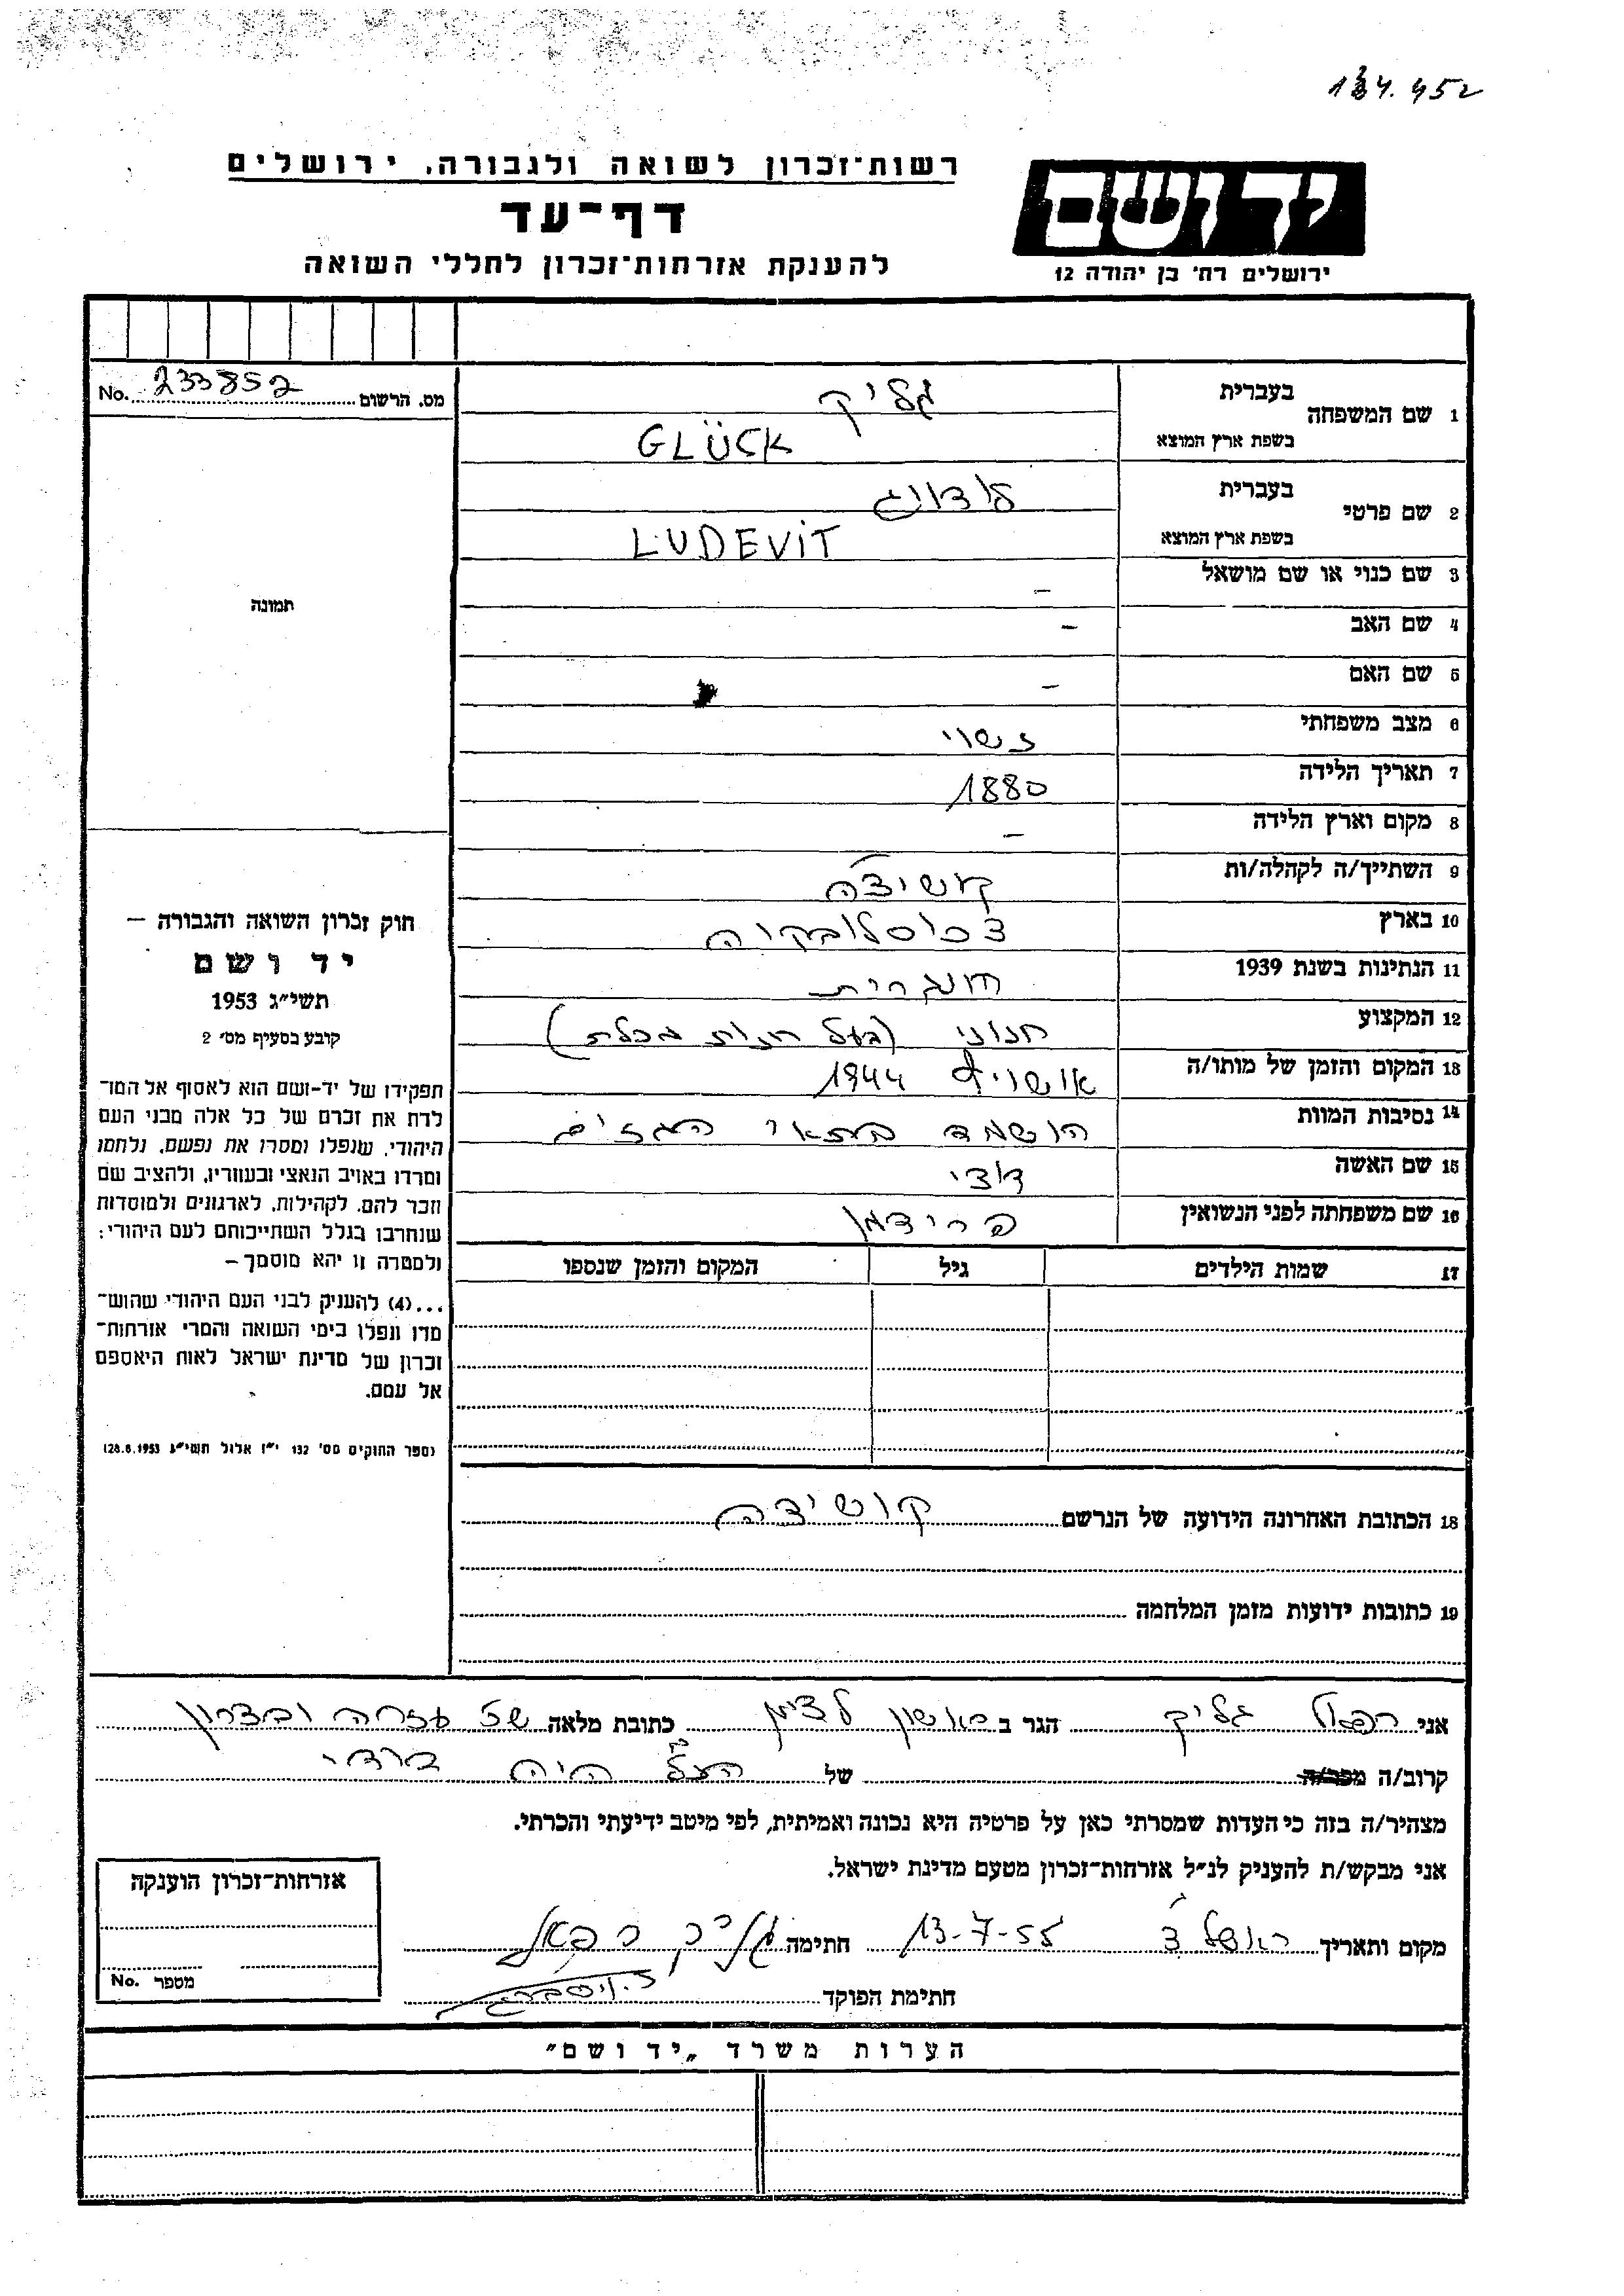 134.452
רשות־זכרון לשואה ולגבורה, ירושלים
דף־עד
להענקת אזרחות־זכרון לחללי השואה
יד ושם
ירושלים רח' בן יהודה 12
מס. הרשום 233852 No.
1 שם המשפחה
בעברית גליק
בשפת ארץ המוצא GLÜCK
2 שם פרטי
בעברית לודויג
בשפת ארץ המוצא LUDEVIT
3 שם כנוי או שם מושאל –
4 שם האב –
5 שם האם –
6 מצב משפחתי נשוי
7 תאריך הלידה 1880
8 מקום וארץ הלידה –
9 השתייך/ה לקהלה/ות קושיצה
10 בארץ צכוסלובקיה
11 הנתינות בשנת 1939 הונגרית
12 המקצוע חנוני (בעל חנות מכלת)
13 המקום והזמן של מותו/ה אושויץ 1944
14 נסיבות המוות הושמד בתאי הגזים
15 שם האשה
16 שם משפחתה לפני הנשואין פרידמן
17 שמות הילדים גיל המקום והזמן שנספו
18 הכתובת האחרונה הידועה של הנרשם קושיצה
19 כתובות ידועות מזמן המלחמה
תמונה
חוק זכרון השואה והגבורה –
יד ושם
תשי״ג 1953
קובע בסעיף מס׳ 2
תפקידו של יד-ושם הוא לאסוף אל המו־
לדת את זכרם של כל אלה מבני העם
היהודי, שנפלו ומסרו את נפשם, נלחמו
ומרדו באויב הנאצי ובעוזריו, ולהציב שם
וזכר להם, לקהילות, לארגונים ולמוסדות
שנחרבו בגלל השתייכותם לעם היהודי;
ולמטרה זו יהא מוסמך –
...(4) להעניק לבני העם היהודי שהוש־
מדו ונפלו בימי השואה והמרי אזרחות־
זכרון של מדינת ישראל לאות היאספם
אל עמם.
(ספר החוקים מס׳ 132 י״ז אלול תשי״ג 28.8.1953)
אני רפאל גליק הגר ב ראשון לציון כתובת מלאה שכ עזרה ובצרון
קרוב/ה מכר/ה של
מצהיר/ה בזה כי העדות שמסרתי כאן על פרטיה היא נכונה ואמיתית, לפי מיטב ידיעתי והכרתי.
אני מבקש/ת להעניק לנ״ל אזרחות־זכרון מטעם מדינת ישראל.
מקום ותאריך ראשל״צ 13-7-55 חתימה גליק רפאל
חתימת הפוקד
אזרחות־זכרון הוענקה
מספר No.
הערות משרד „יד ושם״